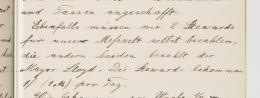 und Tassen angeschafft.
Ebenfalls müssen wir 2 Stewards
für unser Messzelt selbst bezahlen,
die andern beiden bezahlt der
Mayor Lloyd. Die Stewards bekommen
per Tag.